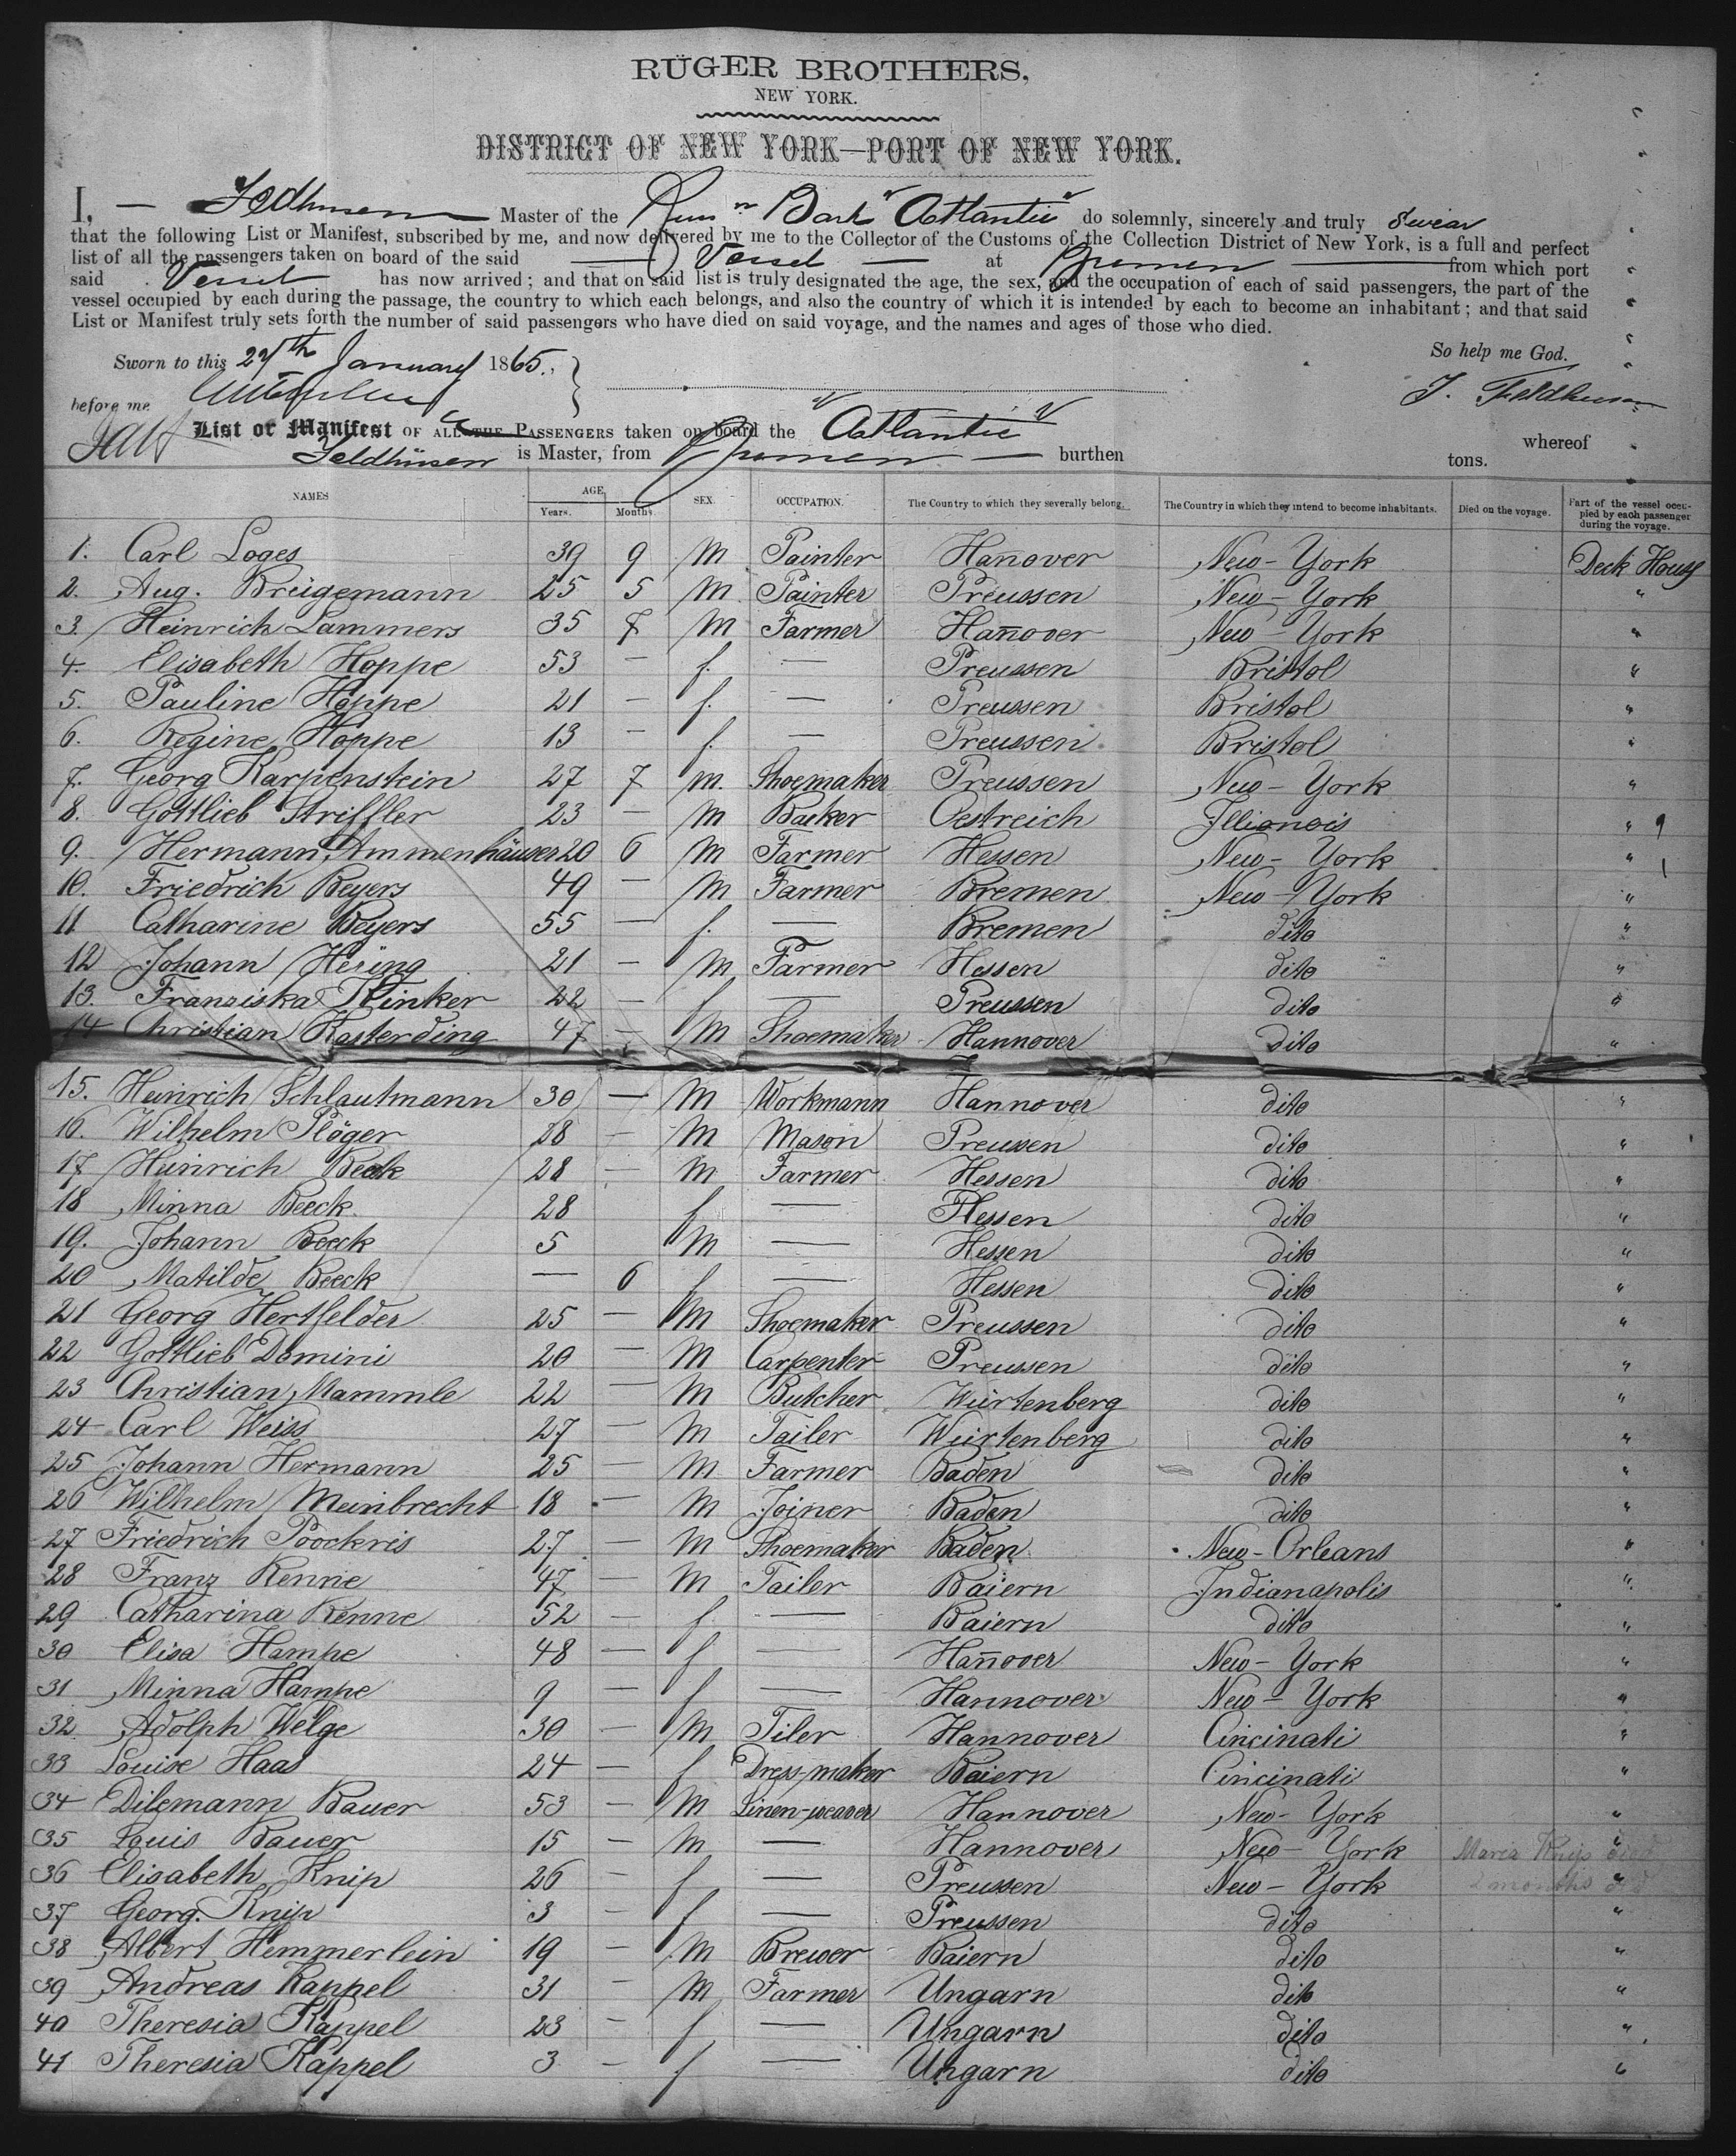 RÜGER BROTHERS,
NEW YORK.
DISTRICT OF NEW YORK—PORT OF NEW YORK.
I, — Feldhusen Master of the Bark "Atlantic" do solemnly, sincerely and truly swear
that the following List or Manifest, subscribed by me, and now delivered by me to the Collector of the Customs of the Collection District of New York, is a full and perfect
list of all the passengers taken on board of the said — Vessel — at Bremen — from which port
said Vessel has now arrived; and that on said list is truly designated the age, the sex, and the occupation of each of said passengers, the part of the
vessel occupied by each during the passage, the country to which each belongs, and also the country of which it is intended by each to become an inhabitant; and that said
List or Manifest truly sets forth the number of said passengers who have died on said voyage, and the names and ages of those who died.
So help me God.
Sworn to this January 1865.
before me
J. Feldhusen
List or Manifest OF ALL THE PASSENGERS taken on board the "Atlantic" whereof
Feldhüsen is Master, from Bremen — burthen tons.
NAMES AGE. Years. Months. SEX. OCCUPATION. The Country to which they severally belong. The Country in which they intend to become inhabitants. Died on the voyage. Part of the vessel occupied by each passenger during the voyage.
1. Carl Loges 39 9 M Painter Hanover New-York Deck House
2. Aug. Brügemann 25 5 M Painter Preussen New-York "
3. Heinrich Lammers 35 7 M Farmer Hannover New-York "
4. Elisabeth Hoppe 53 — f. — Preussen Bristol "
5. Pauline Hoppe 21 — f. — Preussen Bristol "
6. Regine Hoppe 13 — f. — Preussen Bristol "
7. Georg Karpenstein 27 7 m. Shoemaker Preussen New-York "
8. Gottlieb Striffler 23 — M Backer Oestreich Illionois " 9
9. Hermann Ammenhäuser 20 6 M Farmer Hessen New-York " 1
10. Friedrich Beyers 49 — M Farmer Bremen New-York "
11 Catharine Beyers 55 — f. — Bremen dito "
12 Johann Hering 21 — M Farmer Hessen dito "
13. Franziska Klinker 22 — f — Preussen dito "
14 Christian Kasterding 47 — M Shoemaker Hannover dito "
15. Heinrich Schlautmann 30 — M Workmann Hannover dito "
16. Wilhelm Plöger 28 — M Mason Preussen dito "
17 Heinrich Beck 28 — M Farmer Hessen dito "
18 Minna Beeck 28 f — Hessen dito "
19. Johann Beeck 5 M — Hessen dito "
20 Matilde Beeck — 6 f — Hessen dito "
21 Georg Hertfelder 25 — M Shoemaker Preussen dito "
22 Gottlieb Domini 20 — M Carpenter Preussen dito "
23 Christian Mammle 22 — M Butcher Würtenberg dito "
24 Carl Weiss 27 — M Tailer Würtenberg dito "
25 Johann Hermann 25 — M Farmer Baden dito "
26 Wilhelm Meinbrecht 18 — M Joiner Baden dito "
27 Friedrich Poockris 27 — M Shoemaker Baden New-Orleans "
28 Franz Renne 47 — M Tailer Baiern Indianapolis "
29 Catharina Renne 52 — f. — Baiern dito "
30 Elisa Hampe 48 — f. — Hannover New-York "
31 Minna Hampe 9 — f — Hannover New-York "
32 Adolph Welge 30 — M Tiler Hannover Cincinati "
33 Louise Haas 24 — f Dress-maker Baiern Cincinati "
34 Dilemann Bauer 53 — M Linen-weaver Hannover New-York "
35 Louis Bauer 15 — M — Hannover New-York Maria Knip died "
36 Elisabeth Knip 26 — f — Preussen New-York 2 months "
37 Georg. Knip 3 — f — Preussen dito "
38 Albert Hemmerlein 19 — M Brewer Baiern dito "
39 Andreas Kappel 31 — M Farmer Ungarn dito "
40 Theresia Kappel 23 — f — Ungarn dito "
41 Theresia Kappel 3 — f — Ungarn dito "